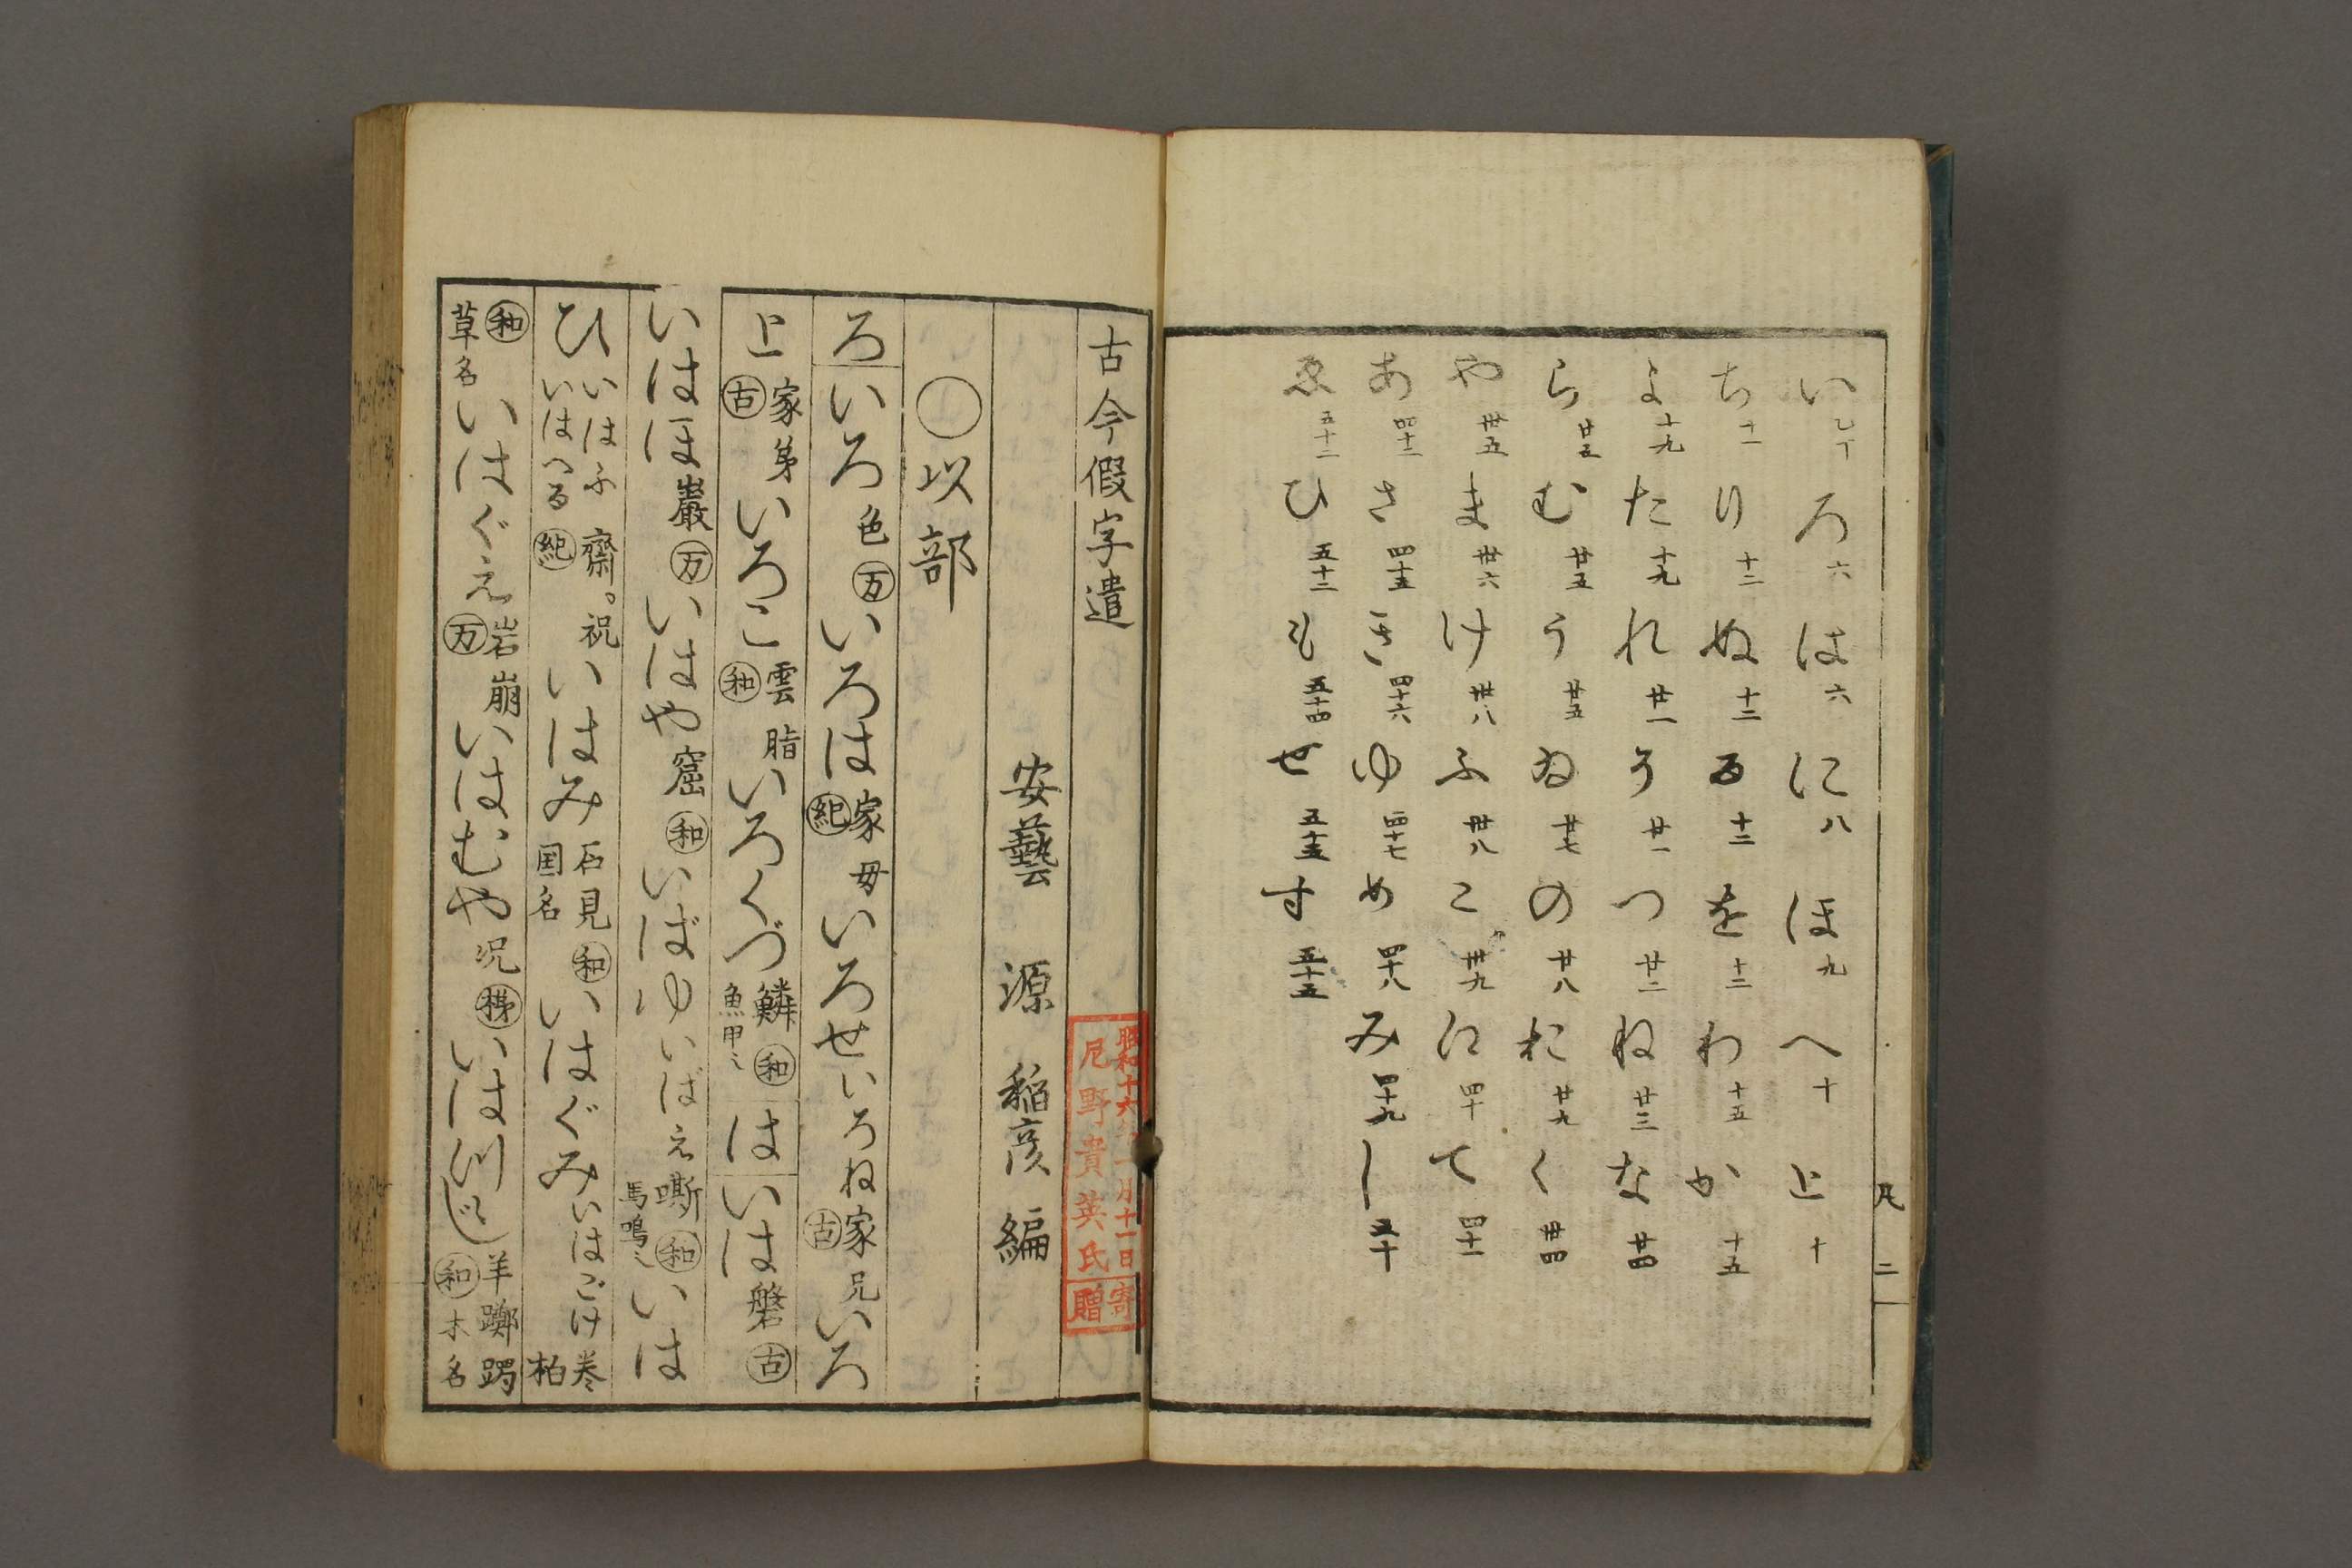 い 乙丁 ろ 六 は 六 に 八 ほ 九 へ 十 と 十
ち 十一 り 十二 ぬ 十二 る 十二 を 十二 わ 十五 か 十五
よ 十九 た 十九 れ 廿一 そ 廿一 つ 廿二 ね 廿三 な 廿四
ら 廿五 む 廿五 う 廿五 ゐ 廿七 の 廿八 お 廿九 く 卅四
や 卅五 ま 卅六 け 卅八 ふ 卅八 こ 卅九 え 四十 て 四十一
あ 四十二 さ 四十五 き 四十六 ゆ 四十七 め 四十八 み 四十九 し 五十
ゑ 五十二 ひ 五十二 も 五十四 せ 五十五 す 五十五
凡 二
古今假字遣
安藝 源 稲彦 編
○以部
ろ いろ 色 万 いろは 家母 紀 いろせ いろね 家兄 古 いろ
と 家弟 古 いろこ 雲脂 和 いろくづ 鱗 魚甲〻 和 は いは 磐 古
いはほ 巌 万 いはや 窟 和 いばゆ いばえ 嘶 馬鳴〻 和 いは
ひ いはふ いはへる 齋。祝 紀 いはみ 石見 国名 和 いはぐみ いはごけ 巻柏
和 草名 いはぐえ 岩崩 万 いはむや 况 いはつゝじ 羊躑躅 和 木名
昭和十六年一月十一日寄
尼野貴英氏贈